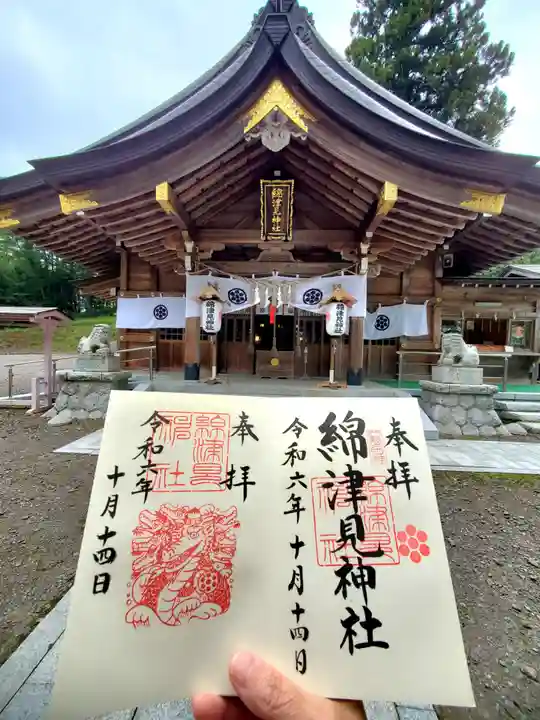 綿津見神社
綿津見神社
綿津見神社
奉拝
綿津見神社
令和六年十月十四日
奉拝
綿津見
神社
令和六年
十月十四日